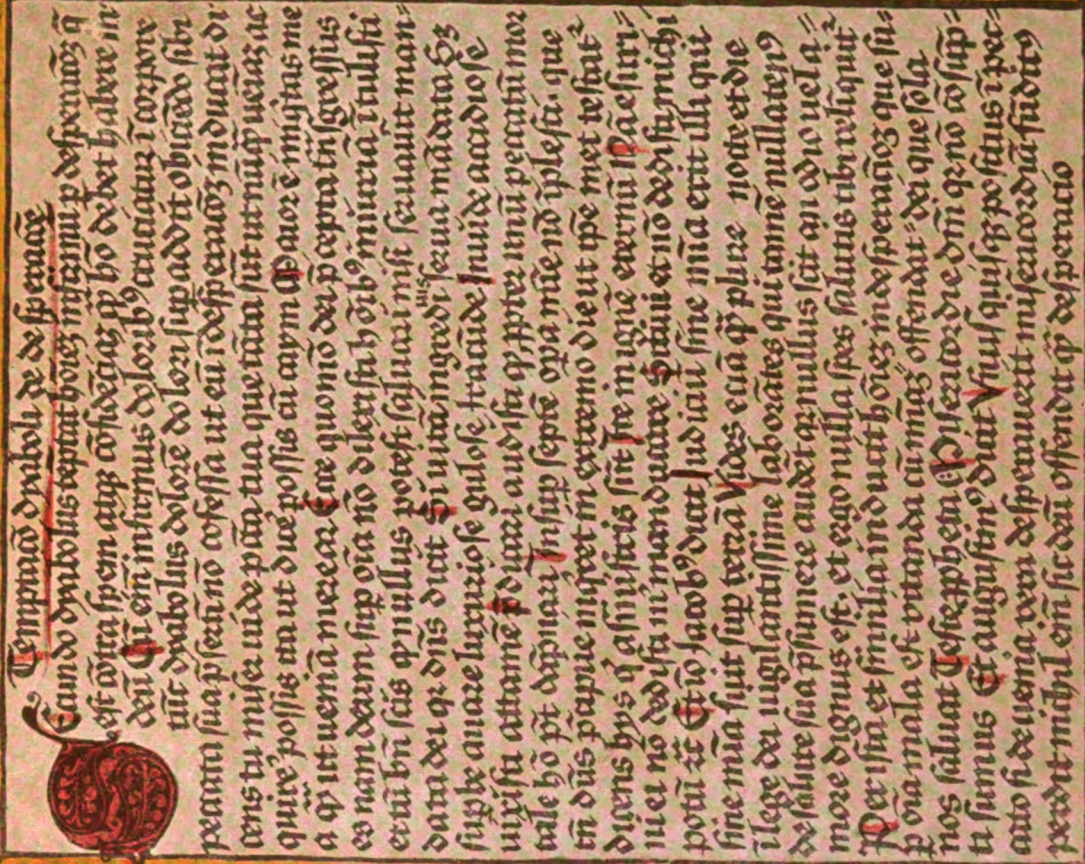 Temptacō dyaboli de despacōe
Secundo dyabolus temptat hoīez infirmū p desperacōz q̄
est cōtra spem atqz cōfidēciaz quā hō debet habere in
deū Cū em̄ infirmus dolorib9 cruciatur ī corpore
tūc dyabolus dolorē dolori suꝑ addit obiciēdo sibi
peccata sua p̄sertī nō cōfessa ut eū ī desperacōz inducat di
cens tu miser uide pcc̄ta tua que tāta sūt ut nūqꝫ ueniaz ac
quirē possis ita ut dicē possis cū caym Maior ē iniq̄tas mea
q̄ ut ueniā merear Ecce quomō dei p̄cepta trāsgressus
es nam deum suꝑ oīa nō dilexisti hoīb9 iniuriā ītulisti
et tn̄ bn̄ scis ꝙ nullus potest saluari nisi seruauit man=
data dei qr dn̄s dicit Si uis ad uitam ingredi serua mādata Sꝫ
suꝑbe auare luxuriose gulose iracūde Inuide accidiose
uixisti attamē p̄dicari audisti ꝙ ꝓpter unū peccatū mor
tale hō pt̄ dāpnari Insuꝑ septē oꝑa mīe nō īplesti que
tn̄ dn̄s p̄cipue inquiret in extremo die ut ip̄e met testat̄
dicens hys q̄ a sinistris sūt Ite in ignē eternū Nā esuri=
ui et nō dedistis michi manducare Sitiui et nō dedistis michi
potū etc̄ Et iō Iacob9 dicit Iudiciū sine mīa erit illi qui
sine mīa fuit suꝑ terrā Vides eciā q̄ꝫ plures nocte et die
ī lege dei uigilantissime laborātes qui tamē nullaten9
de salute sua p̄sumere audēt qr nullus scit an odio uel a=
more dignus est et ergo nulla spes salutis tibi relinquit̄
Per ista et similia inducit hoīes in desperacōz que su=
ꝑ oīa mala est vitanda cū mīas offendat dei que sola
nos saluat Teste ꝓpheta Misericordie dn̄i qr nō cōsūp=
ti sumus Et augustin9 dicit Vnusquisqꝫ positus ī pec=
cato si de uenia vera desperauerit misericordiā fūdit9
perdit nichil em̄ sic deū offendit q̄ꝫ desperacio